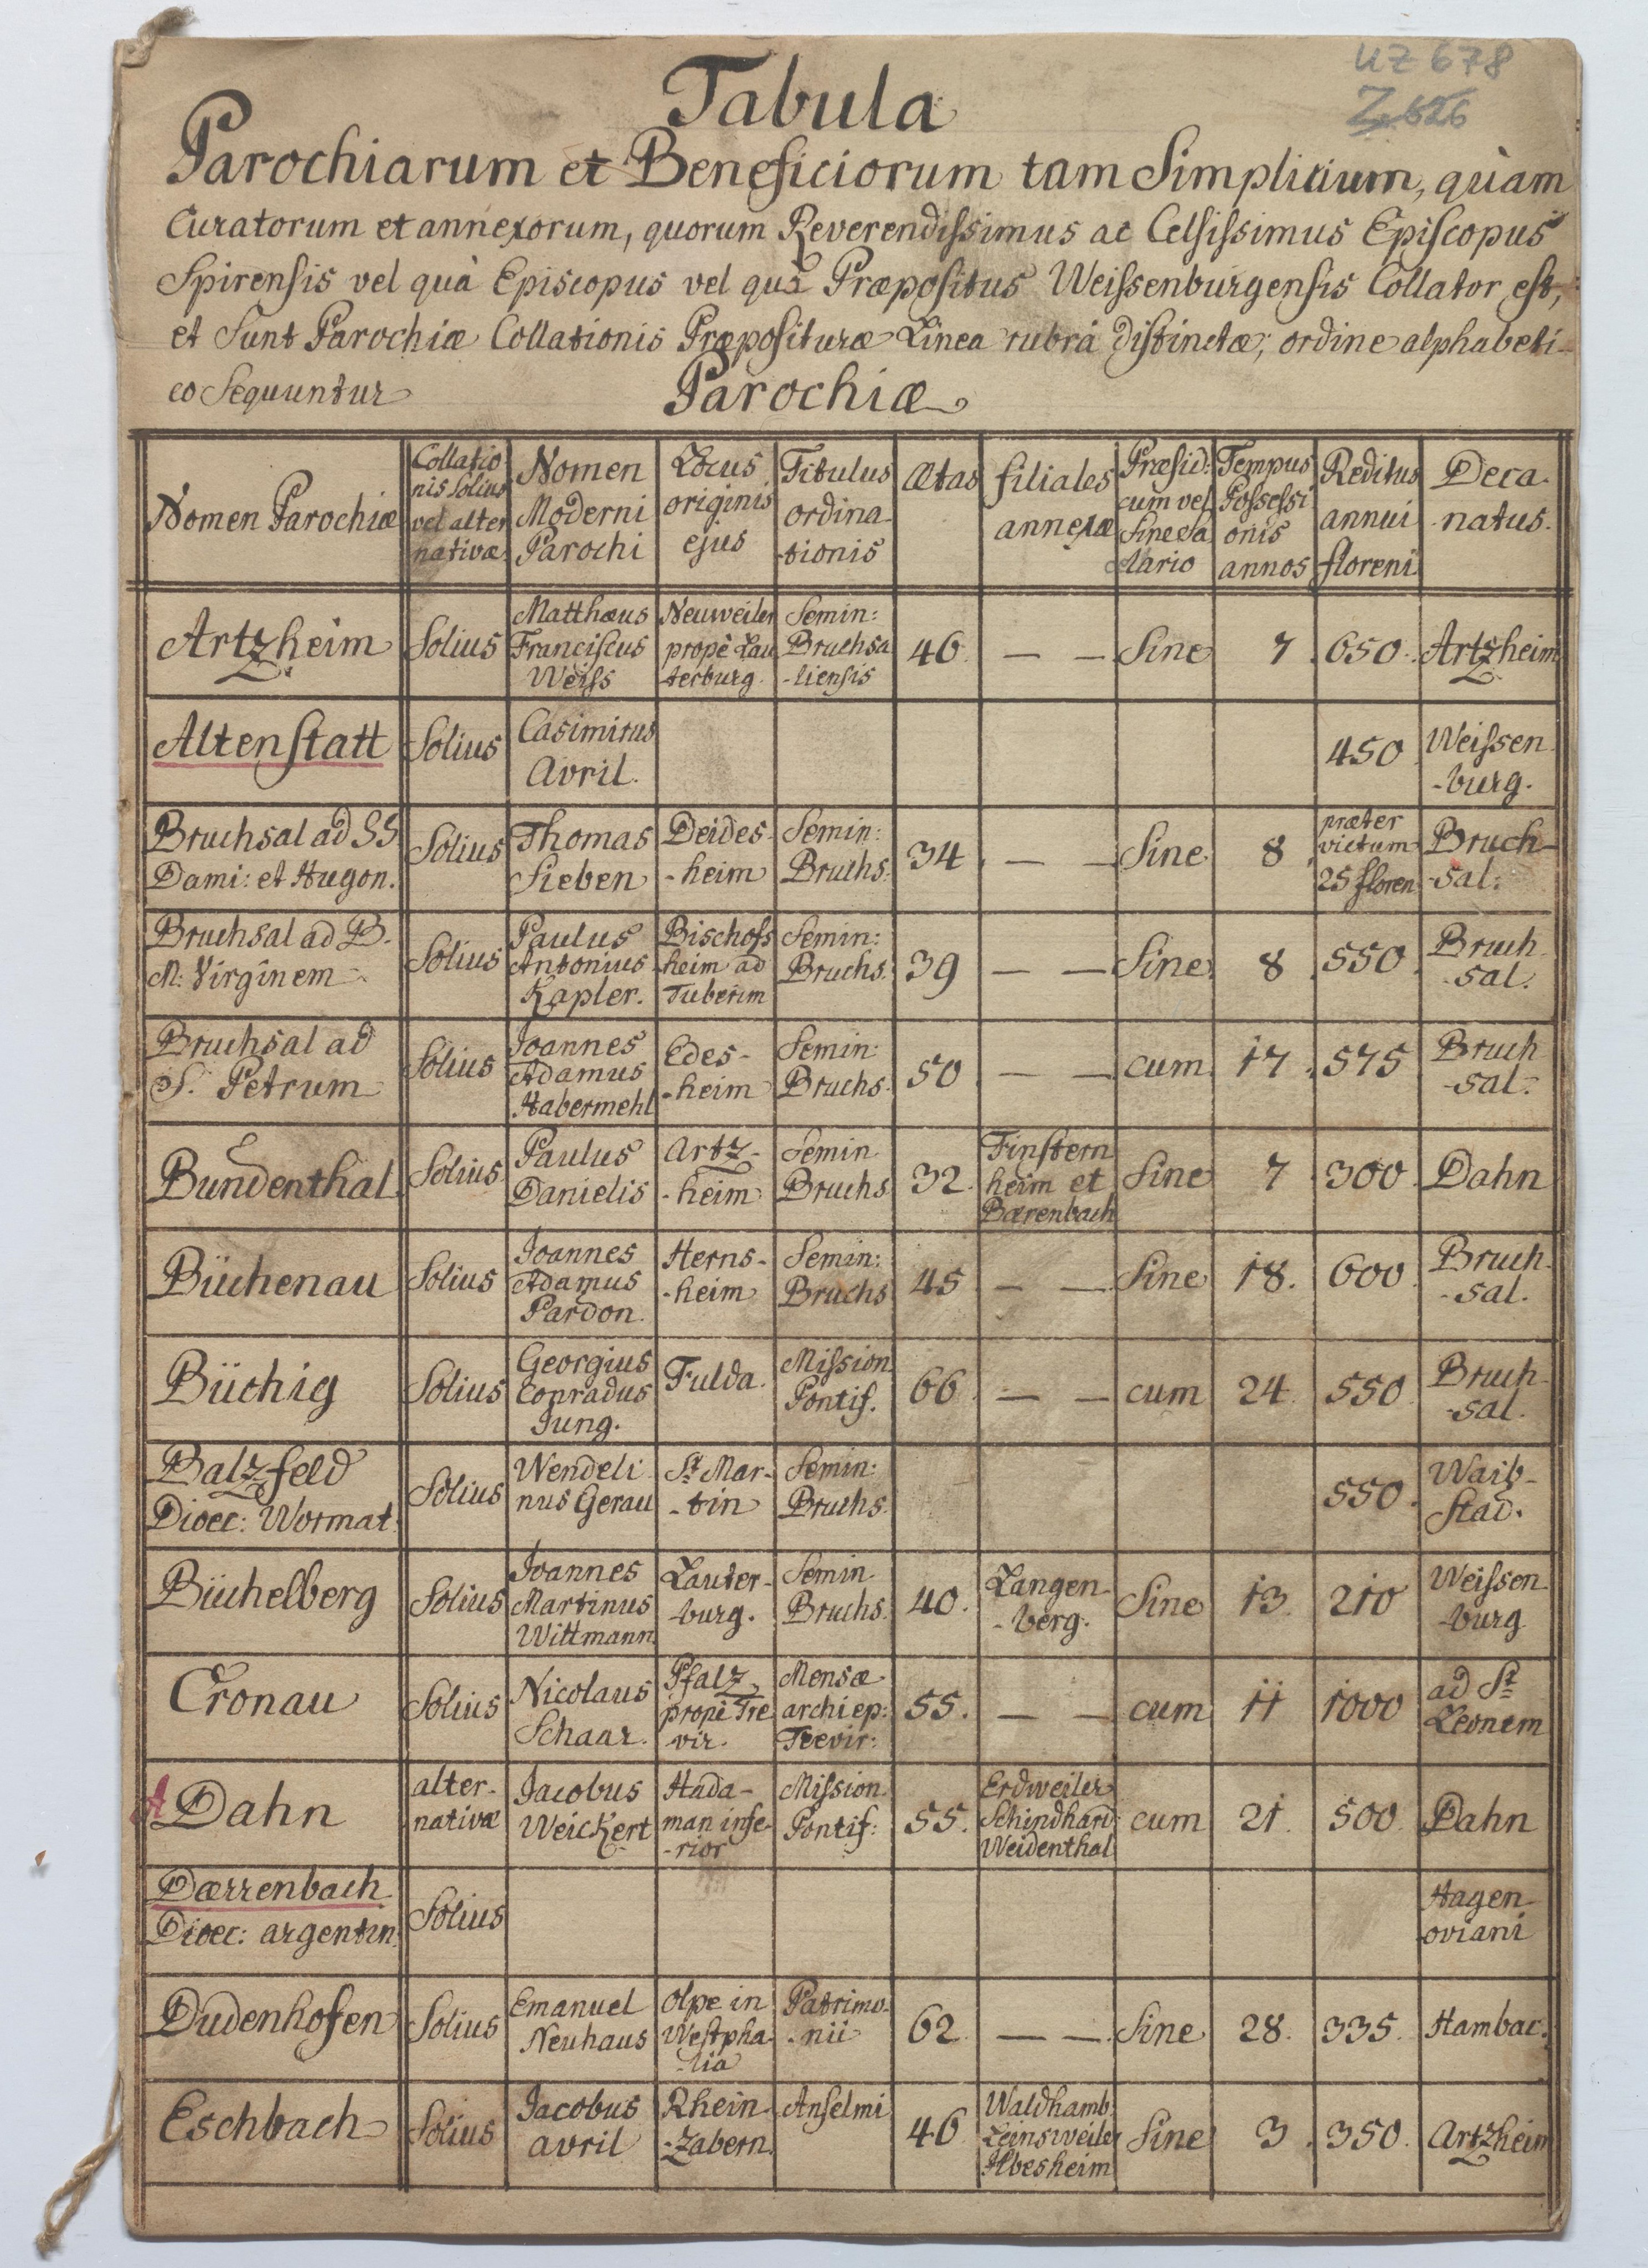 UZ 678
Z. 626
Tabula
Parochiarum et Beneficiorum tam Simplicium, quàm
Curatorum et annexorum, quorum Reverendissimus ac Celsissimus Episcopus
Spirensis vel quà Episcopus vel quà Præpositus Weissenburgensis Collator est,
et Sunt Parochiæ Collationis Præposituræ Linea rubrà distinctæ; ordine alphabeti-
co Sequuntur
Parochiæ
Nomen Parochiæ
Collatio
nis Solius
vel alter
nativæ
Nomen
Moderni
Parochi
Locus
originis
ejus
Titulus
ordina-
-tionis
Ætas
filiales
annexæ
Præsid:
cum vel
Sine Sa
lario
Tempus
Possessi
onis
annos
Reditus
annui
floreni
Deca-
-natus.
Artzheim
Solius
Matthæus
Franciscus
Weiss
Neuweiler
propè Lau
terburg.
Semin:
Bruchsa
-liensis
46
— —
Sine
7
650.
Artzheim
Altenstatt
Solius
Casimirus
Avril.
450
Weissen-
-burg.
Bruchsal ad SS
Dami: et Hugon.
Solius
Thomas
Sieben
Deides-
-heim
Semin:
Bruchs.
34
— —
Sine
8
præter
victum
25 floren
Bruch-
-sal.
Bruchsal ad B.
M. Virginem
Solius
Paulus
Antonius
Kapler.
Bischofs
heim ad
Tuberim
Semin:
Bruchs.
39
— —
Sine
8
550.
Bruch-
-sal.
Bruchsal ad
S. Petrum
Solius
Joannes
Adamus
Habermehl
Edes-
-heim
Semin:
Bruchs.
50
— —
cum
17
575
Bruch
-sal.
Bundenthal
Solius
Paulus
Danielis
Artz-
-heim
Semin
Bruchs
32.
Finstern
heim et
Bærenbach
Sine
7
300.
Dahn
Büchenau
Solius
Joannes
Adamus
Pardon.
Herns-
-heim
Semin:
Bruchs
45
— —
Sine
18.
600.
Bruch-
-sal.
Büchig
Solius
Georgius
Conradus
Jung.
Fulda.
Mission
Pontif.
66.
— —
cum
24
550
Bruch-
-sal.
Balzfeld
Dioec: Wormat.
Solius
Wendeli
nus Gerau
St Mar-
-tin
Semin:
Bruchs.
550.
Waib-
stad.
Büchelberg
Solius
Joannes
Martinus
Wittmann
Lauter-
-burg.
Semin.
Bruchs.
40.
Langen-
-berg.
Sine
13.
210
Weissen-
-burg
Cronau
Solius
Nicolaus
Schaar.
Pfalz
propè Tre
vir.
Mensæ
archiep:
Trevir:
55.
— —
cum
11
1000
ad St
Leonem
A Dahn
alter-
nativæ
Jacobus
Weickert
Hada-
man infe-
-rior
Mission.
Pontif:
55.
Erdweiler
Schindhard
Weidenthal
cum
21.
500.
Dahn
Dærrenbach
Dioec: argentin.
Solius
Hagen-
oviani
Dudenhofen
Solius
Emanuel
Neuhaus
Olpe in
Westpha-
-lia
Patrimo-
-nii
62.
— —
Sine
28.
335.
Hambac.
Eschbach
Solius
Jacobus
avril
Rhein-
-Zabern.
Anselmi
46
Waldhamb.
Leinsweiler
Ilbesheim
Sine
3.
350.
Artzheim